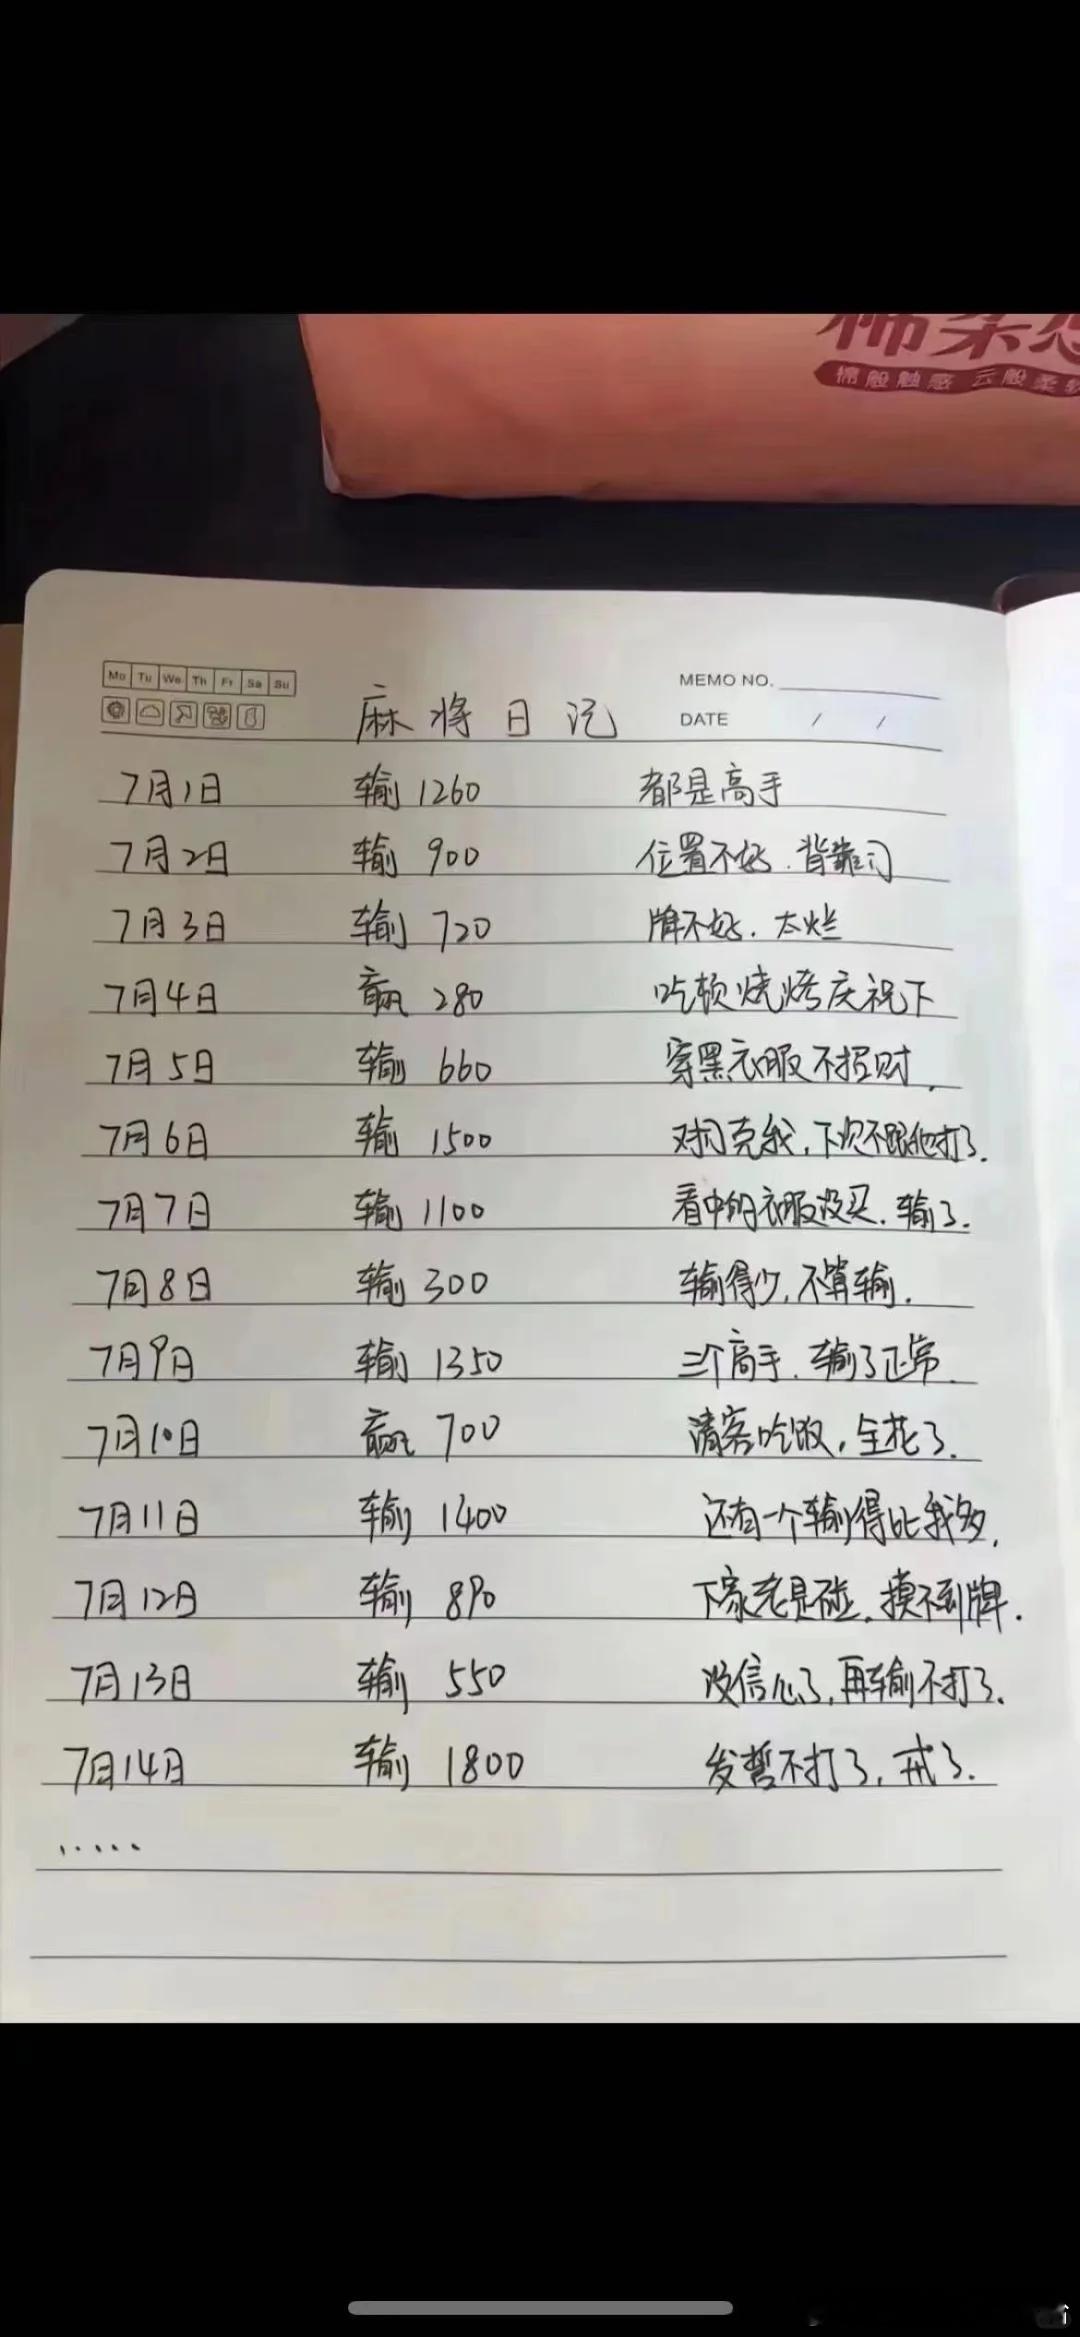 棉柔
棉般触感 云般柔软
Mo Tu We Th Fr Sa Su
MEMO NO.
麻将日记
DATE / /
7月1日 输1260 都是高手
7月2日 输 900 位置不好.背靠门
7月3日 输 720 牌不好.太烂
7月4日 赢 280 吃顿烧烤庆祝下
7月5日 输 660 穿黑衣服不招财.
7月6日 输 1500 对门克我,下次不跟他打了.
7月7日 输 1100 看中的衣服没买.输了.
7月8日 输 300 输得少,不算输.
7月9日 输 1350 三个高手.输了正常.
7月10日 赢 700 请客吃饭,全花了.
7月11日 输 1400 还有一个输得比我多.
7月12日 输 890 下家老是碰.摸不到牌.
7月13日 输 550 没信心了,再输不打了.
7月14日 输 1800 发誓不打了,戒了.
.....